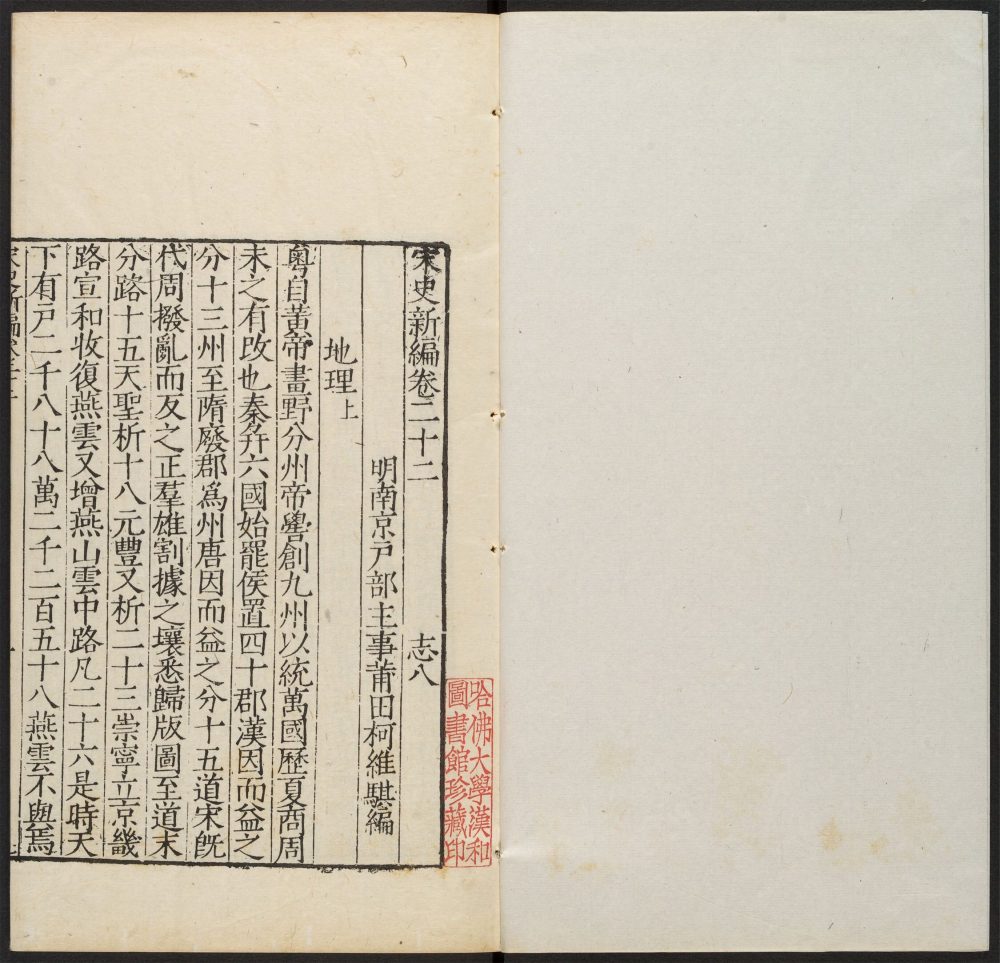 宋史新編卷二十二 志八
明南京戸部主事莆田柯維騏編
地理上
粵自黃帝畫野分州帝嚳創九州以統萬國歷夏商周
未之有改也秦并六國始罷侯置四十郡漢因而益之
分十三州至隋廢郡爲州唐因而益之分十五道宋旣
代周撥亂而反之正羣雄割據之壤悉歸版圖至道末
分路十五天聖析十八元豐又析二十三崇寧立京畿
路宣和收復燕雲又增燕山雲中路凡二十六是時天
下有戸二千八十八萬二千二百五十八燕雲不與焉
哈佛大學漢和
圖書館珍藏印